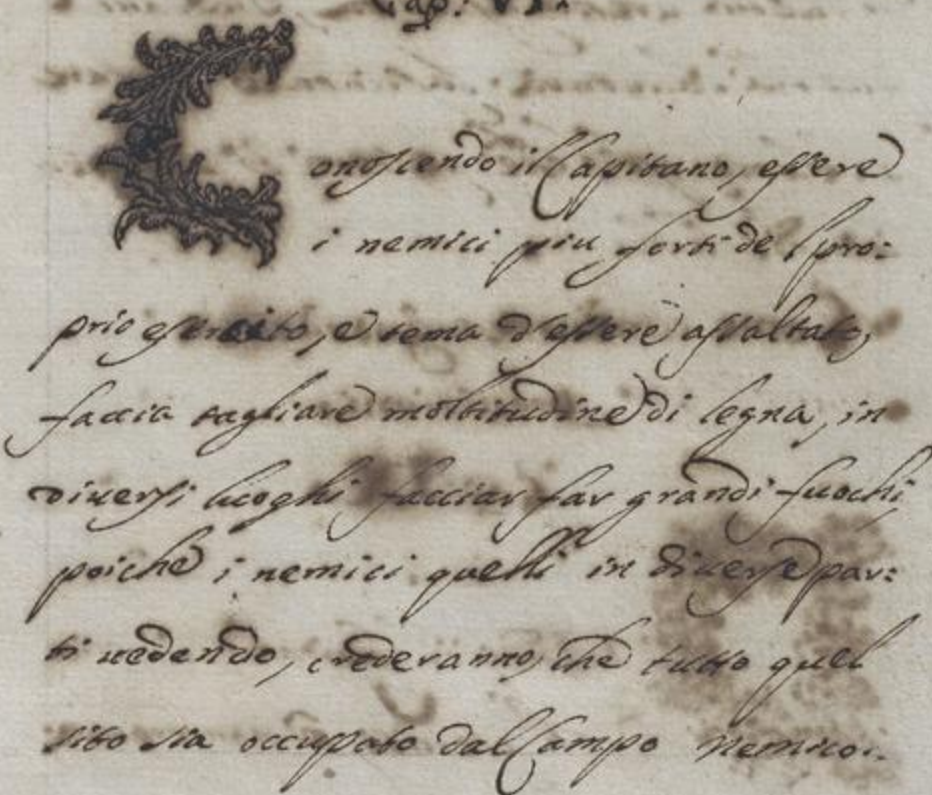 Cap: VI.
Conoscendo il Capitano, essere
i nemici piu forti de l pro:
prio esercito, e tema d'essere assaltato,
faccia tagliare moltitudine di legna, in
diuersi luoghi facciar far grandi fuochi
poiche i nemici quelli in diuerse par:
ti uedendo, crederanno, che tutto quel
sito sia occupato dal Campo nemico.